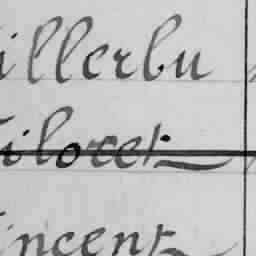 illerbu
ilocet
incent